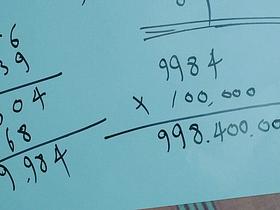 6
39
04
68
9.984
9984
x 100,000
998.400.00